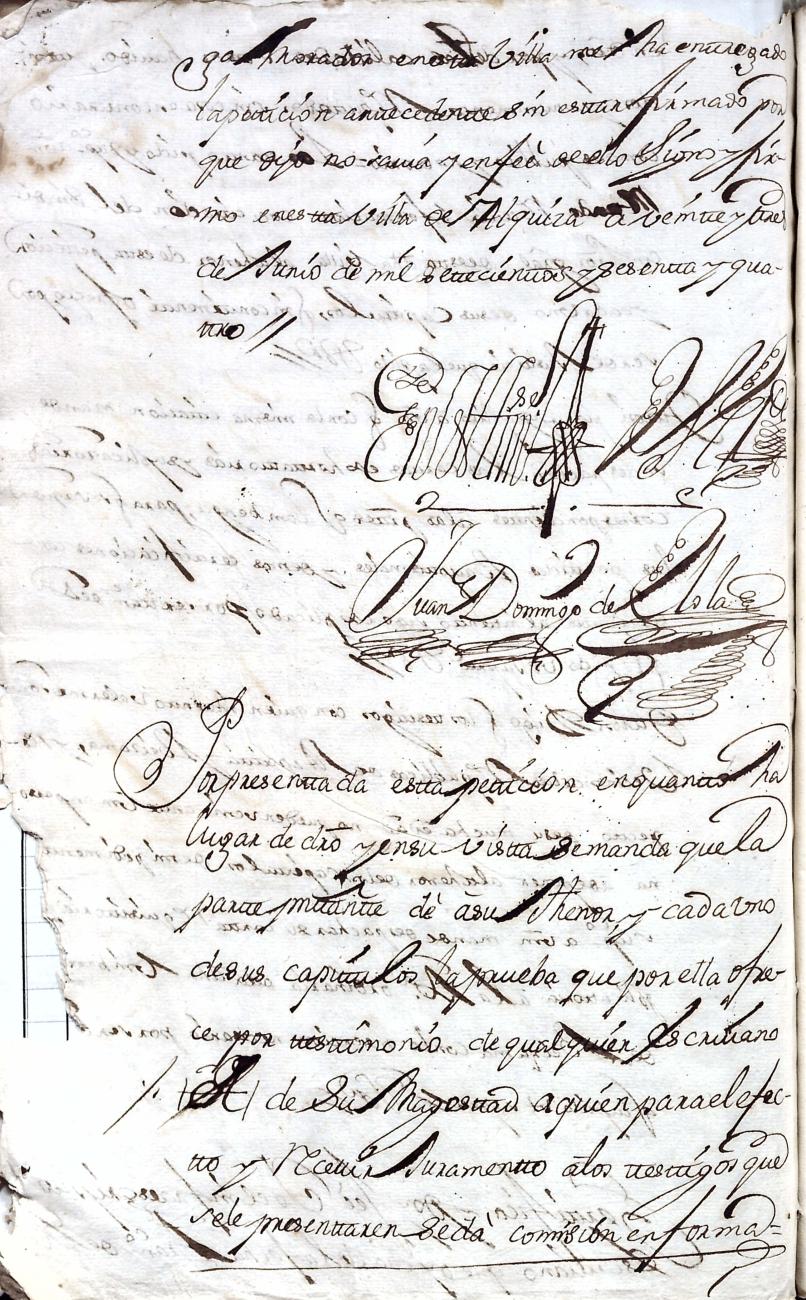 ga Morador en esta Villa me ha entregado
la peticion antecedente sin estar firmado por
que dijo no savia y en feè de ello Signo y fir-
mo en esta Villa de Alquiza a veinte y tres
de Junio de mil setecientos y sesenta y qua-
ttro //
En testimº de Vd.
Juan Domingo de Ysla
Por presentada esta peticion en quanto ha
lugar de dro y en su vista se manda que la
parte de à su thenor, y cada uno
de sus capitulos la prueba que por ella ofre-
ce por testimonio de qualquier Escrivano
Rl de Su Magestad a quien para el efec-
tto y recivir Juramento a los testigos que
se le presentaren se da comision en forma-